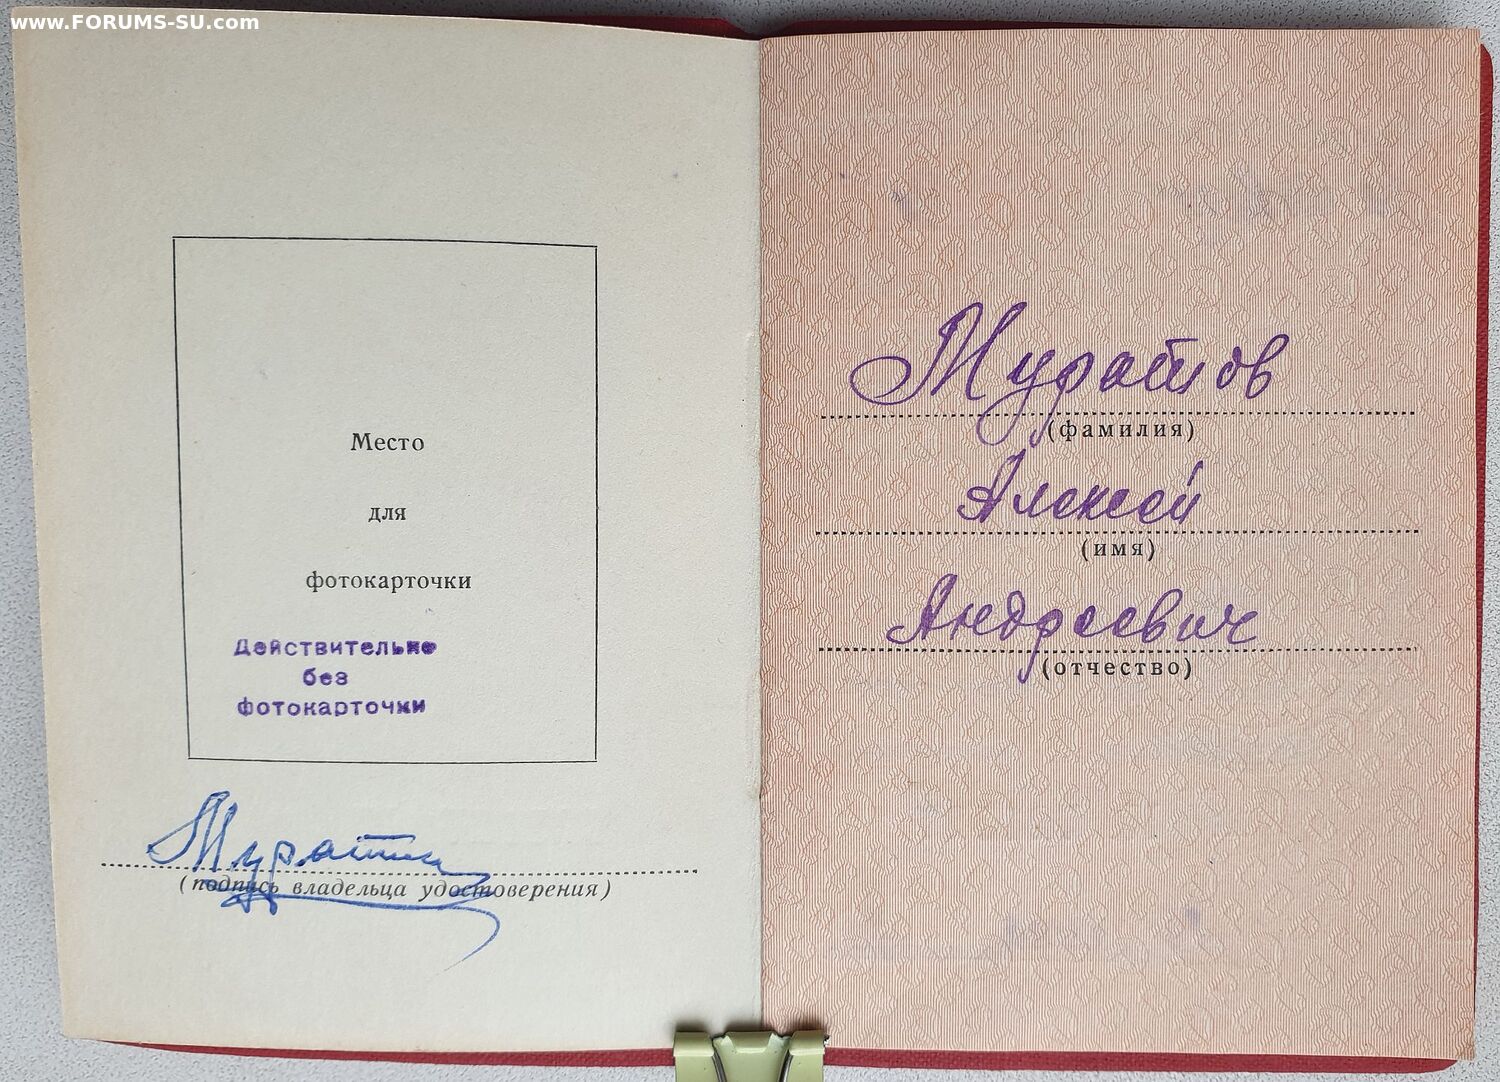 www.FORUMS-SU.com
Место
для
фотокарточки
Действительно
без
фотокарточки
(подпись владельца удостоверения)
Муратов
(фамилия)
Алексей
(имя)
Андреевич
(отчество)